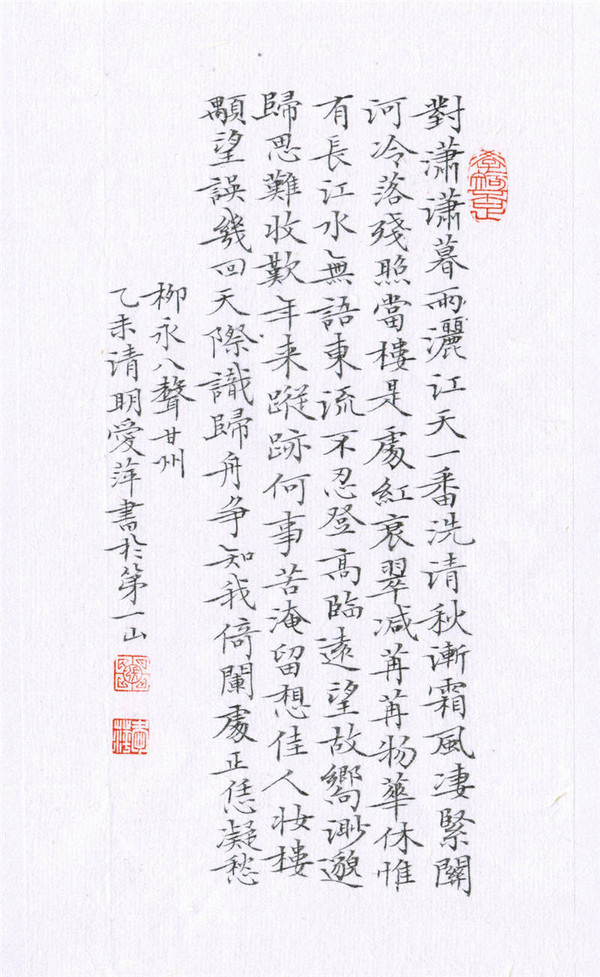 對瀟瀟暮雨灑江天一番洗清秋漸霜風凄緊關
河冷落殘照當樓是處紅衰翠減苒苒物華休惟
有長江水無語東流不忍登高臨遠望故鄉渺邈
歸思難收歎年来蹤跡何事苦淹留想佳人妆樓
顒望誤幾回天際識歸舟争知我倚闌處正恁凝愁
柳永八聲甘州
乙未清明愛萍書於第一山